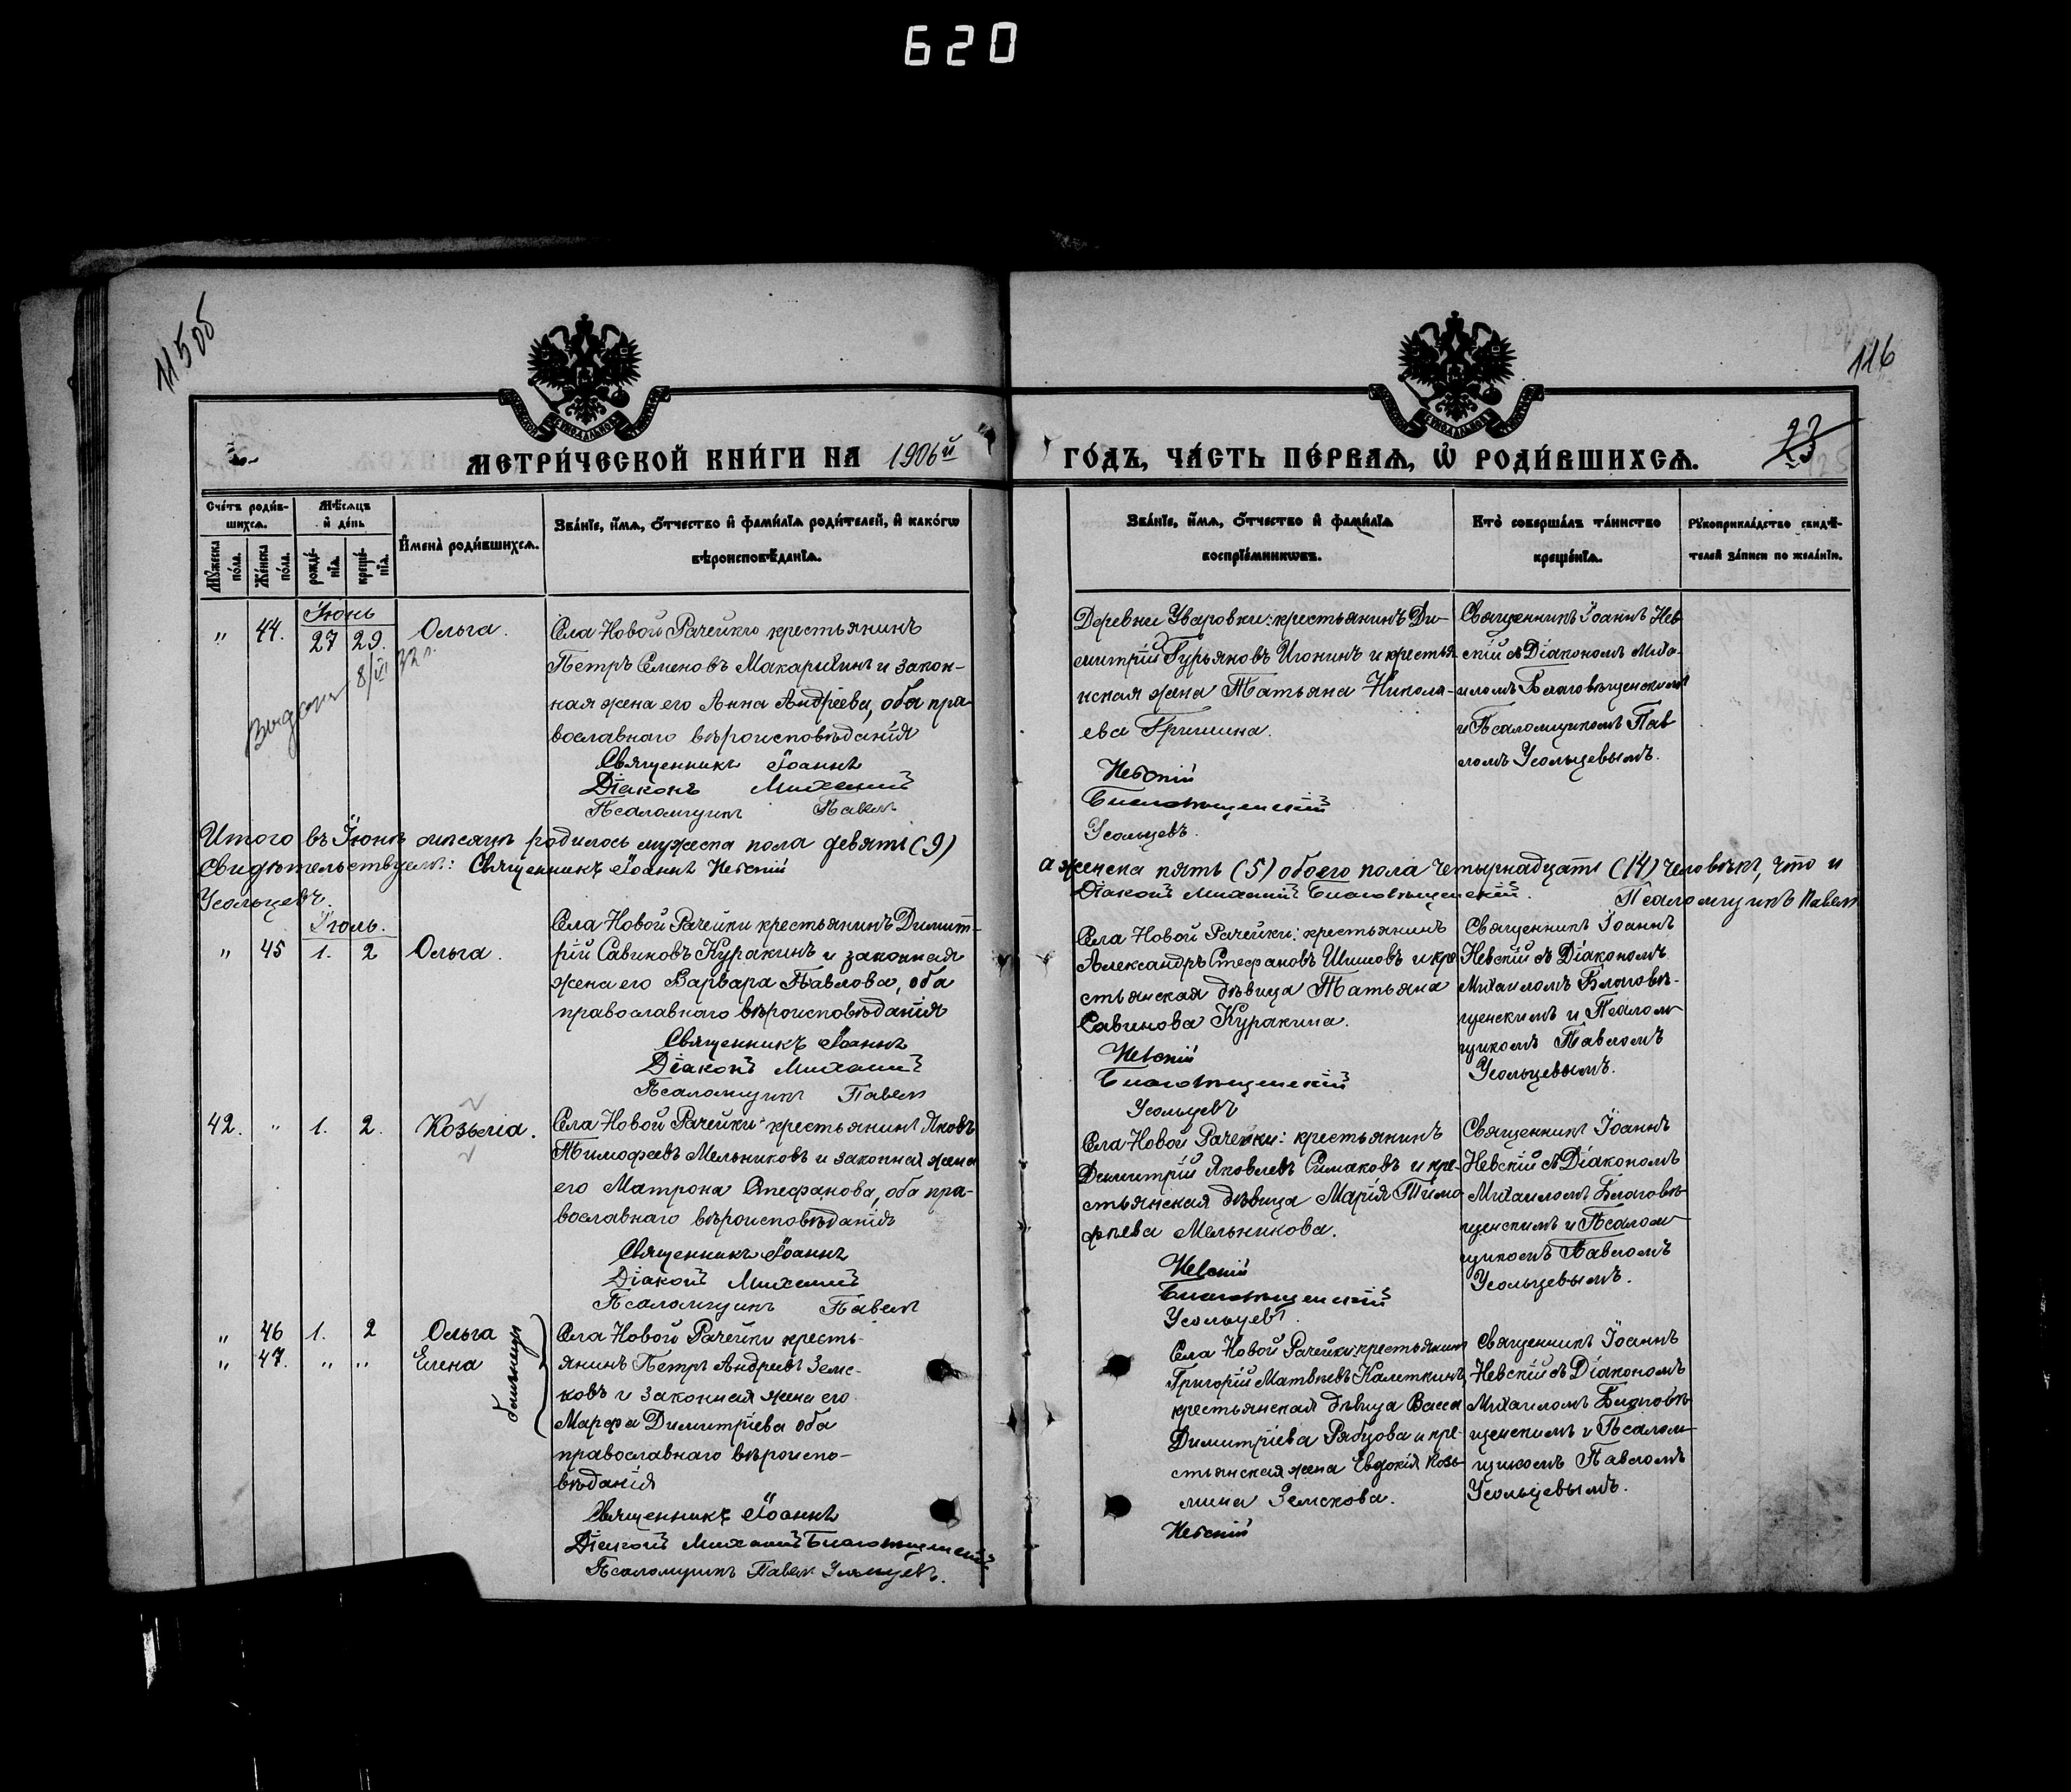 620
115 об
116
МЕТРИ́ЧЕСКОЙ КНИ́ГИ НА 1906й ГО́ДЪ, ЧА́СТЬ ПЕ́РВАѦ, Ѽ РОДИ́ВШИХСѦ.
23
Сче́тъ роди́в-
шихсѧ.
Мꙋ́жеска по́ла.
Же́нска по́ла.
Мѣ́сѧцъ
и҆ де́нь
рожде́-
нїѧ.
креще́-
нїѧ.
И҆мена̀ роди́вшихсѧ.
Зва́нїе, и҆́мѧ, ѻ҆́тчество и҆ фами́лїѧ роди́телей, и҆ како́гѡ
вѣроисповѣ́данїѧ.
Зва́нїе, и҆́мѧ, ѻ҆́тчество и҆ фами́лїѧ
воспрїе́мникѡвъ.
Кто̀ соверша́лъ та́инство
креще́нїѧ.
Рꙋкоприкла́дство свидѣ́-
телей за́писи по жела́нїю.
Іюнь
" 44. 27 29. Ольга.
8/VI 32 г.
Села Новой Рачейки крестьянинъ
Петръ Семеновъ Макарихинъ и закон-
ная жена его Анна Андреева, оба пра-
вославнаго вѣроисповѣданія
Священникъ Іоаннъ
Діаконъ Михаилъ
Псаломщикъ Павелъ
Деревни Уваровки: крестьянинъ Ди-
митрій Гурьяновъ Игонинъ и крестья
нская жена Татьяна Никола-
ева Гришина.
Невскій
Благовѣщенскій
Усольцевъ.
Священникъ Іоаннъ Нев
скій съ Діакономъ Миха-
иломъ Благовѣщенскимъ
и Псаломщикомъ Пав
ломъ Усольцевымъ.
Итого въ Іюнѣ мѣсяцѣ родилось мужеска пола девять (9)
а женска пять (5) обоего пола четырнадцать (14) человѣкъ, что и
свидѣтельствуемъ: Священникъ Іоаннъ Невскій
Діаконъ Михаилъ Благовѣщенскій. Псаломщикъ Павелъ
Усольцевъ.
Іюль.
" 45 1. 2 Ольга.
Села Новой Рачейки крестьянинъ Димит-
рій Савиновъ Куракинъ и законная
жена его Варвара Павлова, оба
православнаго вѣроисповѣданія
Священникъ Іоаннъ
Діаконъ Михаилъ
Псаломщикъ Павелъ
Села Новой Рачейки: крестьянинъ
Александръ Стефановъ Шишовъ и кре
стьянская дѣвица Татьяна
Савинова Куракина.
Невскій
Благовѣщенскій
Усольцевъ
Священникъ Іоаннъ
Невскій съ Діакономъ
Михаиломъ Благовѣ-
щенскимъ и Псалом
щикомъ Павломъ
Усольцевымъ.
42. " 1. 2. Козьма.
Села Новой Рачейки: крестьянинъ Яковъ
Тимофеевъ Мельниковъ и законная жена
его Матрона Стефанова, оба пра-
вославнаго вѣроисповѣданія
Священникъ Іоаннъ
Діаконъ Михаилъ
Псаломщикъ Павелъ
Села Новой Рачейки: крестьянинъ
Димитрій Яковлевъ Симаковъ и кре-
стьянская дѣвица Марія Тимо
фѣева Мельникова.
Невскій
Благовѣщенскій
Усольцевъ.
Священникъ Іоаннъ
Невскій съ Діакономъ
Михаиломъ Благовѣ
щенскимъ и Псалом
щикомъ Павломъ
Усольцевымъ.
" 46 1. 2 Ольга
" 47. " " Елена
близнецы
Села Новой Рачейки кресть-
янинъ Петръ Андреевъ Земс-
ковъ и законная жена его
Марфа Димитріева оба
православнаго вѣроиспо-
вѣданія
Священникъ Іоаннъ
Діаконъ Михаилъ Благовѣщенскій
Псаломщикъ Павелъ Усольцевъ.
Села Новой Рачейки: крестьянинъ
Григорій Матвѣевъ Калеткинъ,
крестьянская дѣвица Васса
Димитріева Рябцова и кре-
стьянская жена Евдокія Козь-
мина Земскова.
Невскій
Священникъ Іоаннъ
Невскій съ Діакономъ
Михаиломъ Благовѣ
щенскимъ и Псалом-
щикомъ Павломъ
Усольцевымъ.